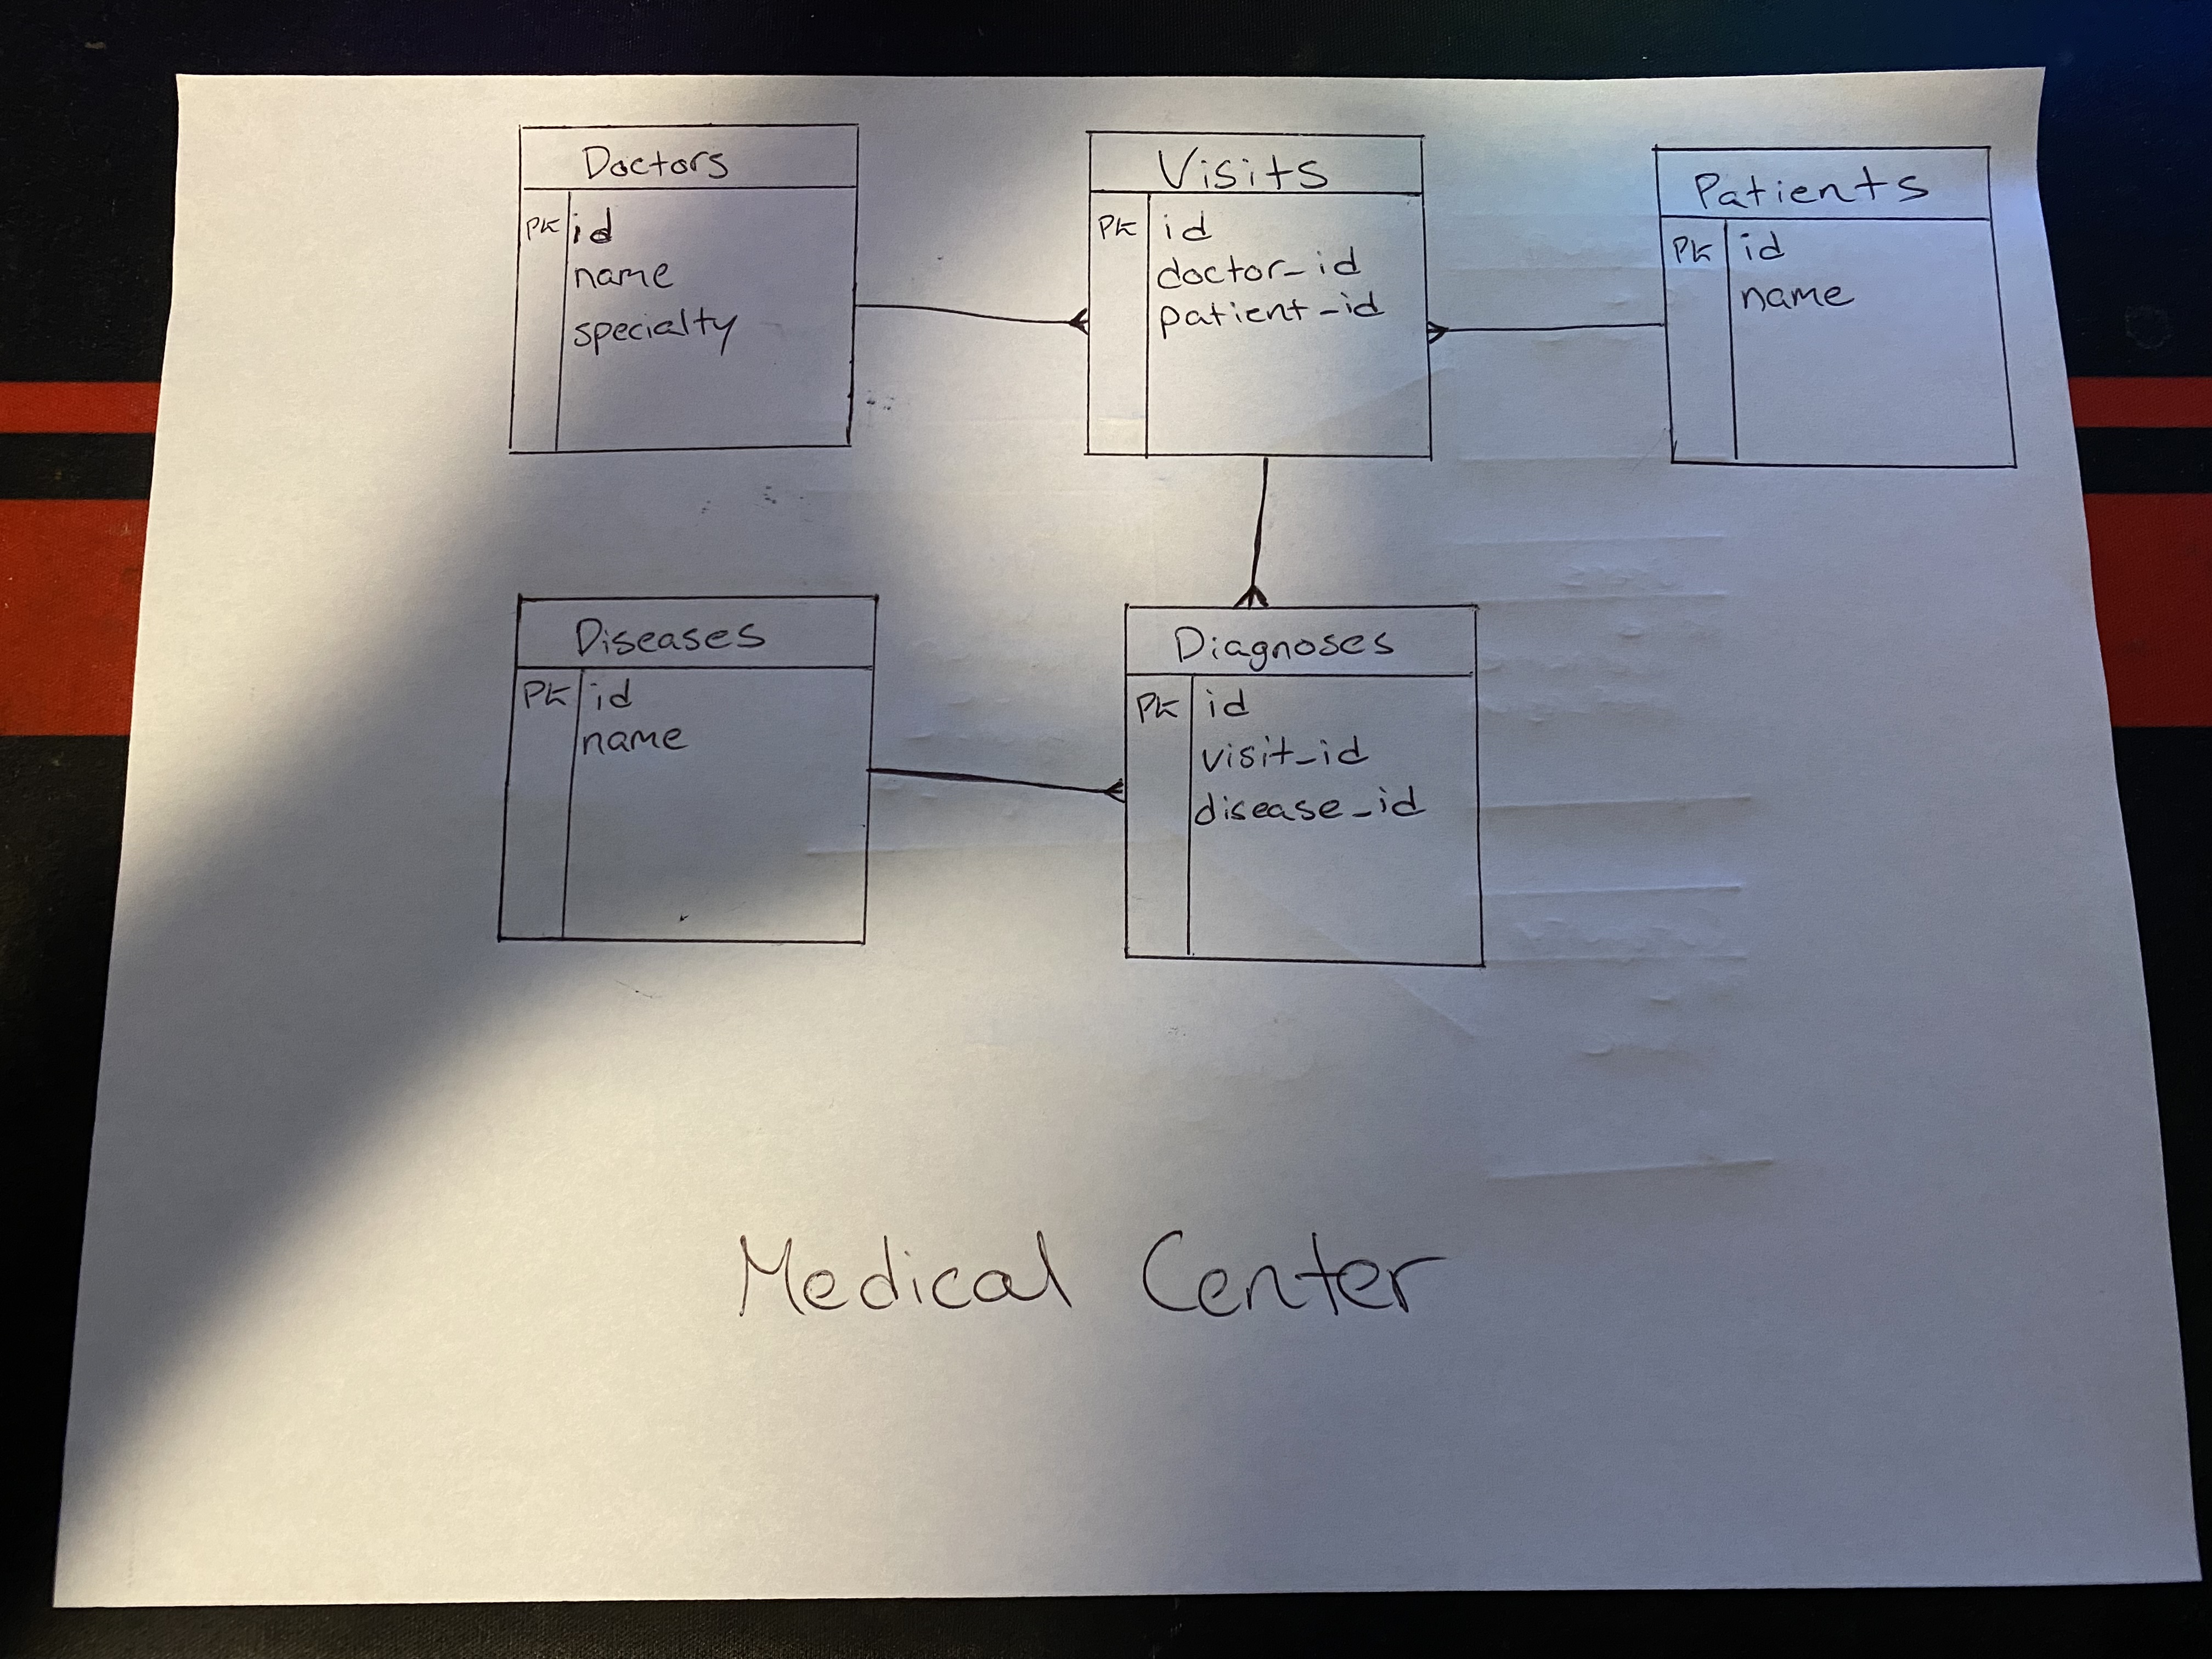 Doctors
PK id
name
specialty
Visits
PK id
doctor_id
patient_id
Patients
PK id
name
Diseases
PK id
name
Diagnoses
PK id
visit_id
disease_id
Medical Center